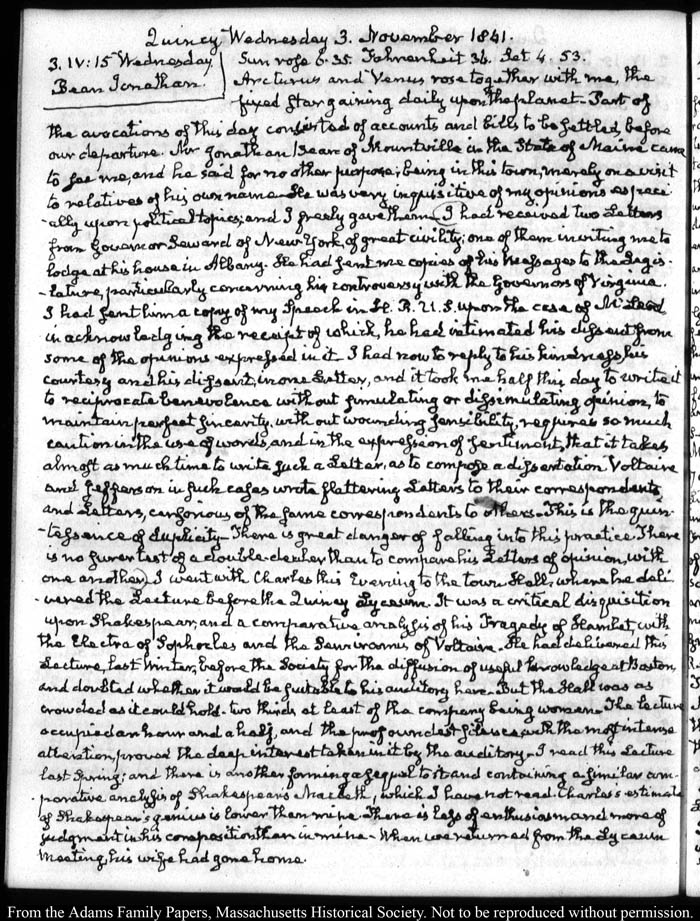 Quincy Wednesday 3. November 1841.
3. IV: 15 Wednesday. Sun rose 6.35. Fahrenheit 36. Set 4. 53.
Bean Jonathan. Arcturus and Venus rose together with me, the
fixed star gaining daily upon the planet. Part of
the avocations of this day consisted of accounts and bills to be settled, before
our departure. Mr Jonathan Bean of Mountville in the State of Maine came
to see me, and he said for no other purpose; being in this town, merely on a visit
to relatives of his own name. He was very inquisitive of my opinions especi
-ally upon political topics; and I freely gave them. I had received two Letters
from Governor Seward of New-York, of great civility; one of them inviting me to
lodge at his house in Albany. He had sent me copies of his Messages to the Legis-
-lature, particularly concerning his controversy with the Governors of Virginia.
I had sent him a copy of my Speech in H. R. U. S. upon the case of McLeod
in acknowledging the receipt of which, he had intimated his dissent from
some of the opinions expressed in it. I had now to reply to his kindness his
courtesy and his dissent, in one Letter, and it took me half this day to write it
to reciprocate benevolence without simulating or dissimulating opinion, to
maintain perfect sincerity, without wounding sensibility, requires so much
caution in the use of words, and in the expression of sentiment, that it takes
almost as much time to write such a Letter, as to compose a dissertation. Voltaire
and Jefferson in such cases wrote flattering Letters to their correspondents,
and Letters, censorious of the same correspondents to others. This is the quin-
-tessence of duplicity. There is great danger of falling into this practice. There
is no surer test of a double-dealer than to compare his Letters of opinion, with
one another. I went with Charles this Evening to the town Hall, where he deli-
-vered the Lecture before the Quincy Lyceum. It was a critical disquisition
upon Shakespear, and a comparative analysis of his Tragedy of Hamlet, with
the Electra of Sophocles and the Semiramis of Voltaire. He had delivered this
Lecture, last Winter, before the Society for the diffusion of useful knowledge at Boston,
and doubted whether it would be suitable to his auditory here. But the Hall was as
crowded as it could hold. two thirds at least of the company being women. The lecture
occupied an hour and a half, and the profoundest silence with the most intense
attention, proved the deep interest taken in it by the auditory. I read this Lecture
last Spring; and there is another forming a sequel to it and containing a similar com-
-parative analysis of Shakespear's Macbeth, which I have not read. Charles's estimate
of Shakespear's genius is lower than mine. There is less of enthusiasm and more of
judgment in his composition than in mine. When we returned from the Lyceum
meeting, his wife had gone home.
From the Adams Family Papers, Massachusetts Historical Society. Not to be reproduced without permission.